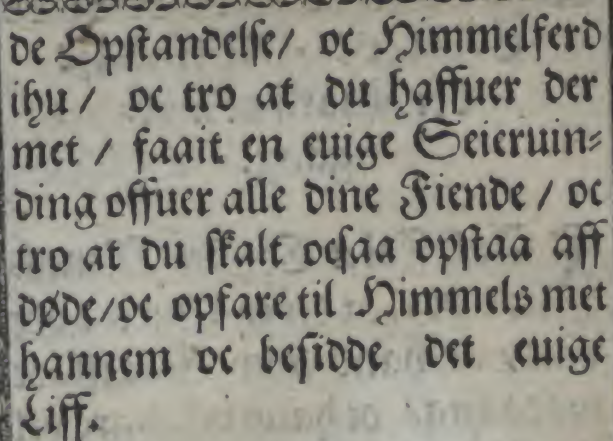 de Opstandelse/ oc Himmelferd
ihu / oc tro at du haffuer der
met / faait en euige Seieruin⸗
ding offuer alle dine Fiende / oc
tro at du skalt ocsaa opstaa aff
døde/oc opfare til Himmels met
hannem oc besidde det euige
Liff.